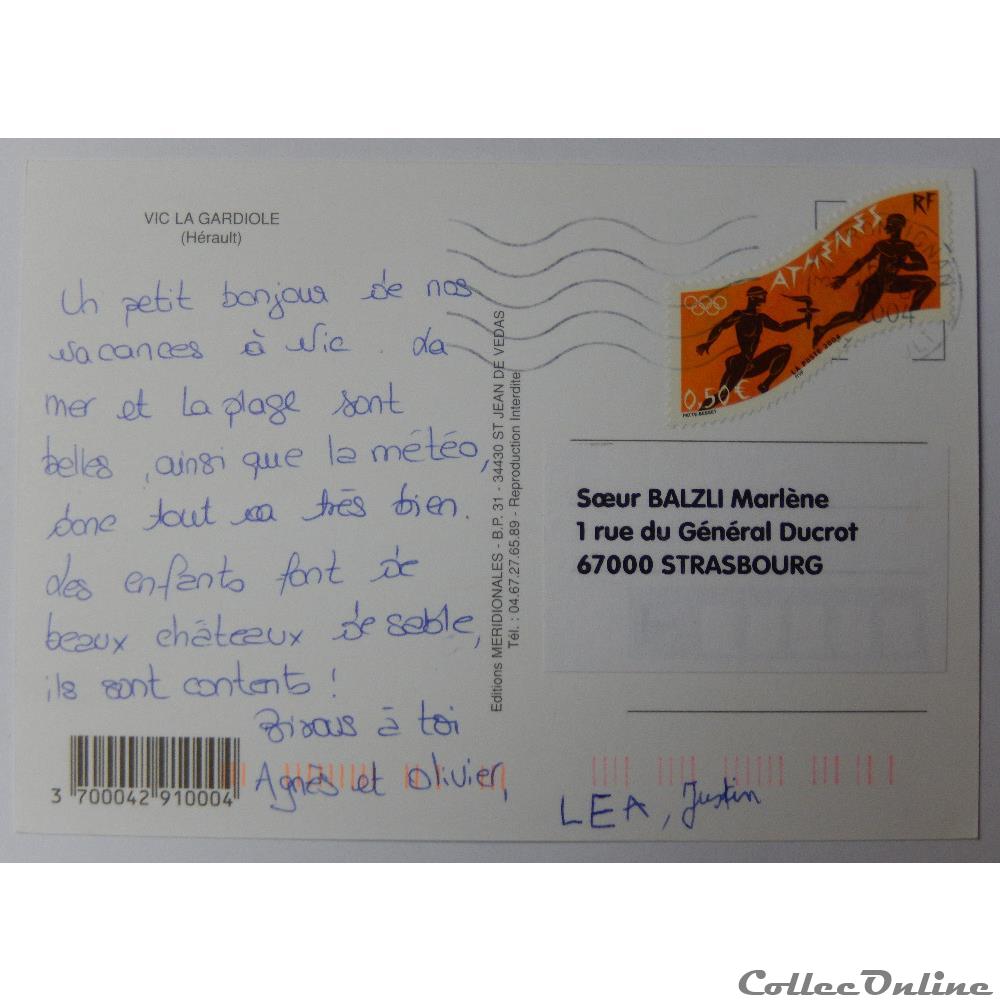 VIC LA GARDIOLE
(Hérault)
Un petit bonjour de nos
vacances à Vic. La
mer et la plage sont
belles, ainsi que la météo,
donc tout va très bien.
Les enfants font de
beaux châteaux de sable,
ils sont contents !
Bisous à toi
Agnès et Olivier,
LEA, Justin
3 700042 910004
Editions MERIDIONALES - B.P. 31 - 34430 ST JEAN DE VEDAS
Tél. : 04.67.27.65.89 - Reproduction Interdite
RF
ATHÈNES
0,50€
LA POSTE 2004
004
Sœur BALZLI Marlène
1 rue du Général Ducrot
67000 STRASBOURG
CollecOnline